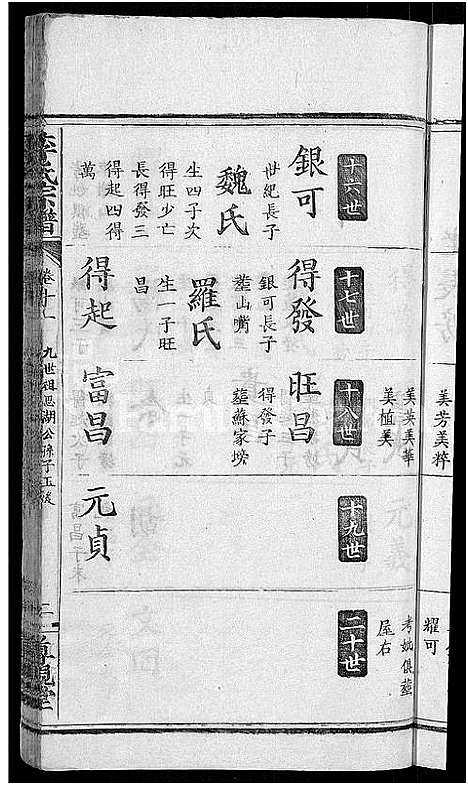 十六世
銀可
世紀長子
魏氏
生四子次
得旺少亡
長得發三
得起四得
萬
十七世
得發
銀可長子
塟山嘴
羅氏
生一子旺
昌
得起
美芳美粹
美英美華
美植美
十八世
旺昌
得發子
塟蘇家塝
富昌
十九世
元貞
耀可
考妣俱塟
屋右
二十世
李氏宗譜
卷十一
九世祖思湖公孫子玉役